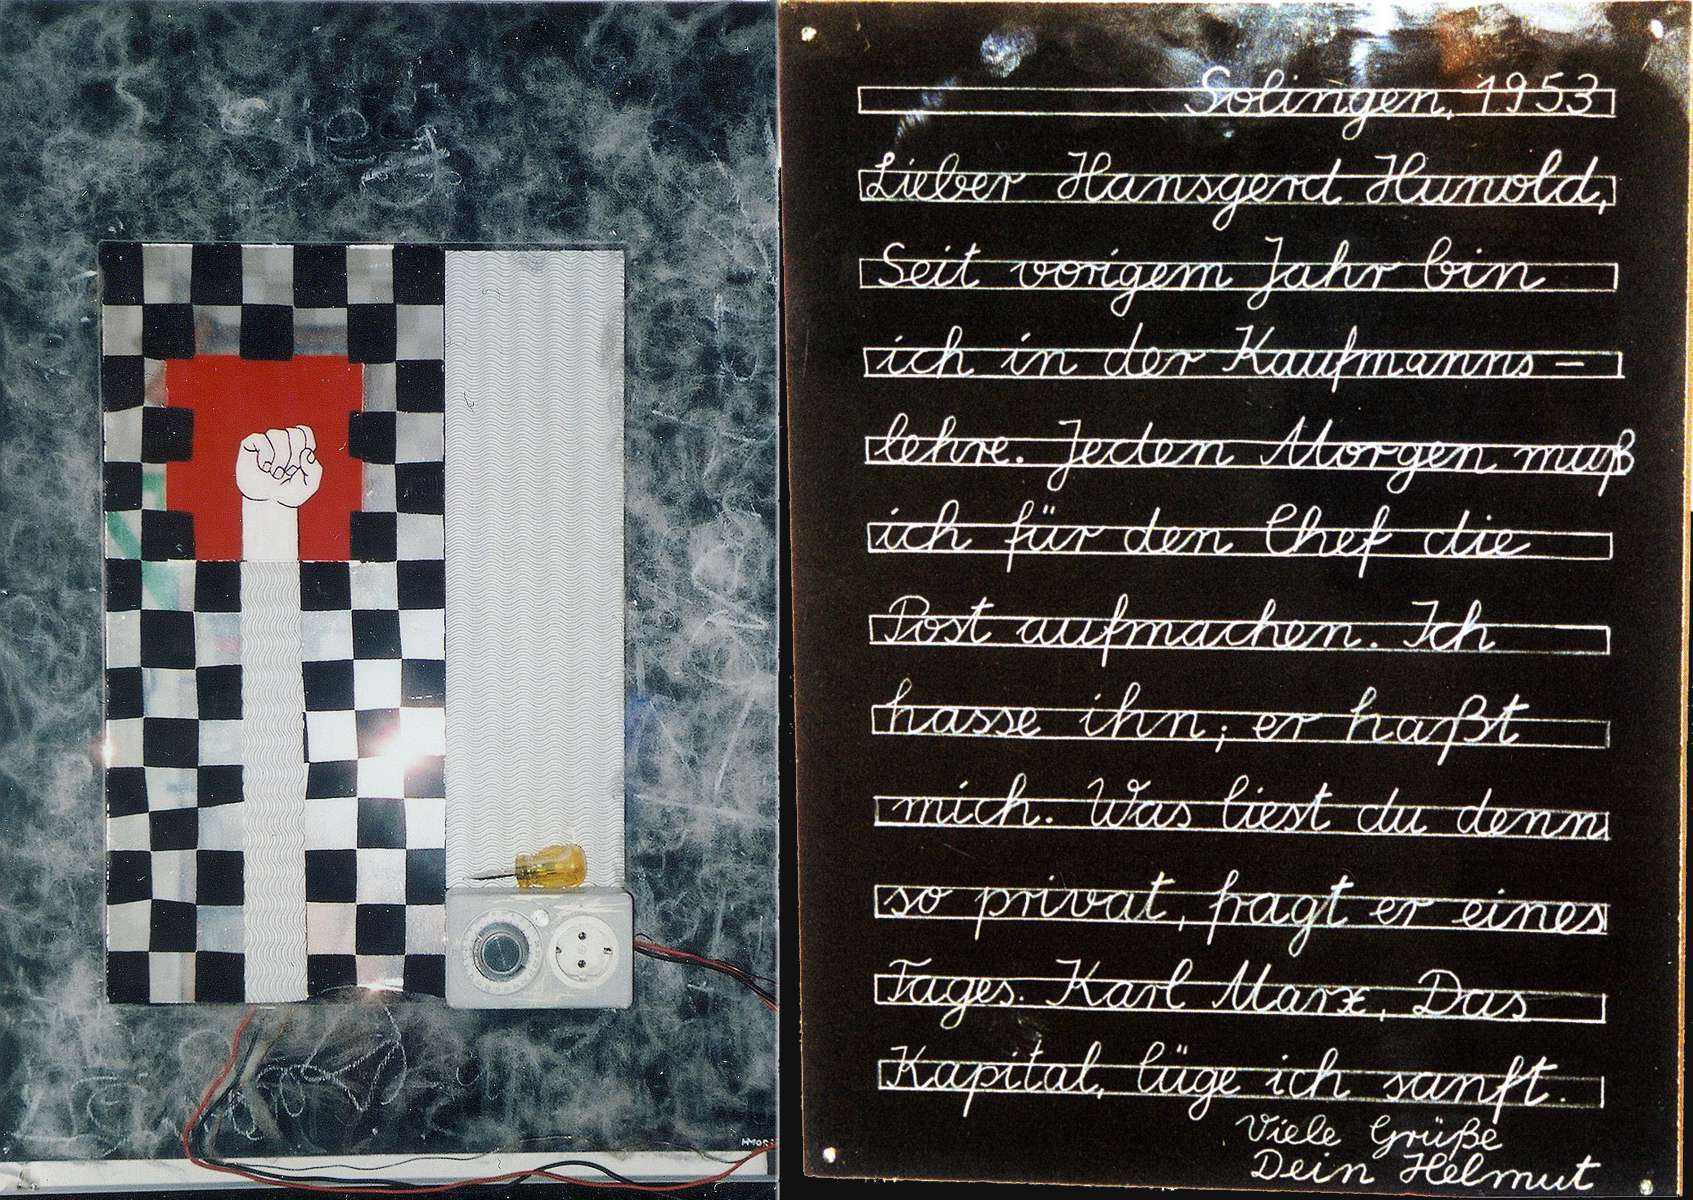 Solingen, 1953
Lieber Hansgerd Hunold,
Seit vorigem Jahr bin
ich in der Kaufmanns-
lehre. Jeden Morgen muß
ich für den Chef die
Post aufmachen. Ich
hasse ihn; er haßt
mich. Was liest du denn
so privat, fragt er eines
Tages. Karl Marx, Das
Kapital, lüge ich sanft.
Viele Grüße
Dein Helmut